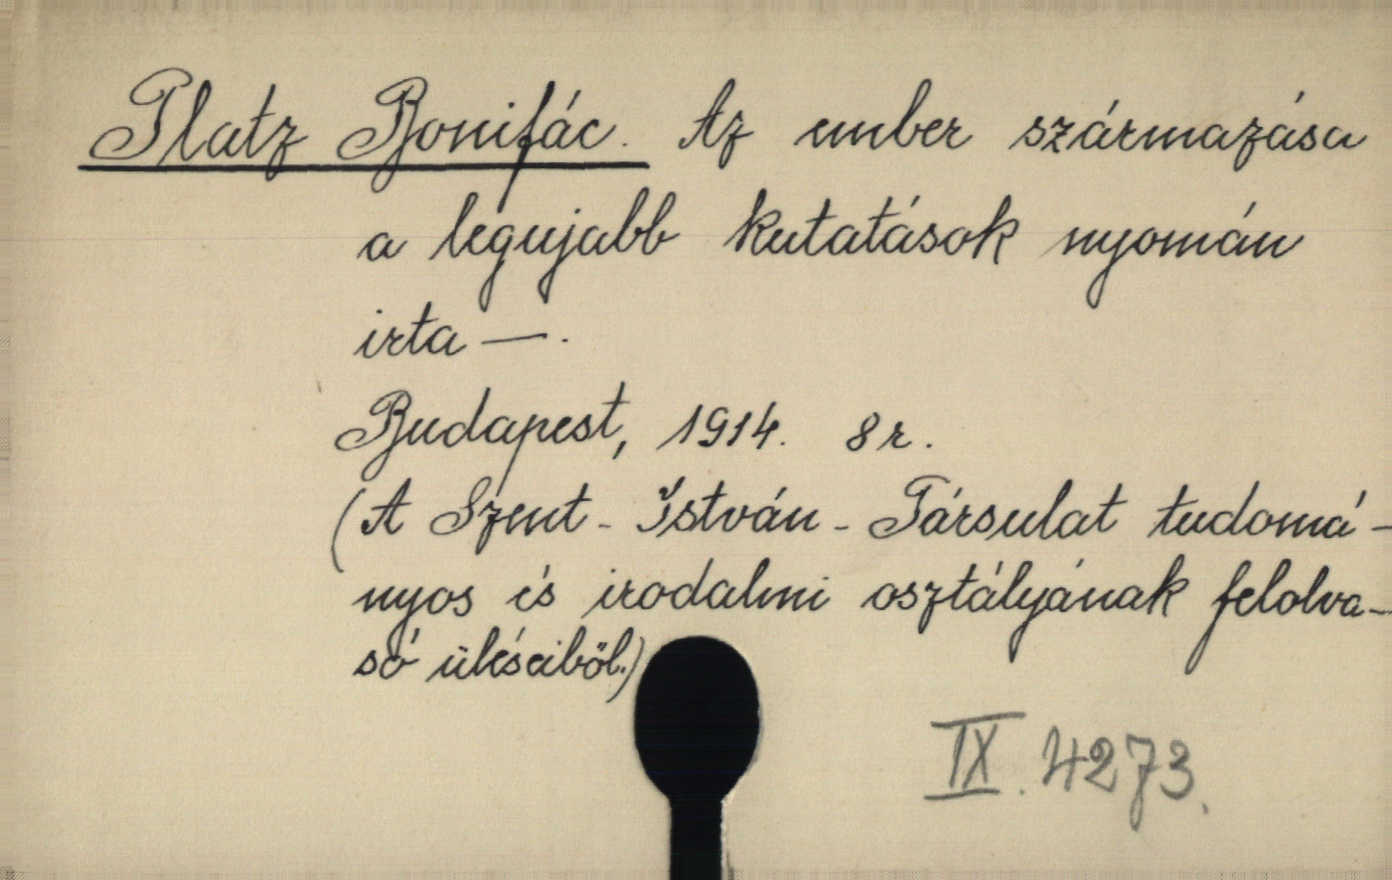 Platz Bonifác. Az ember származása
a legujabb kutatások nyomán
irta —.
Budapest, 1914. 8r.
(A Szent-István-Társulat tudomá-
nyos és irodalmi osztályának felolva-
só üléseiből.)
IX. 4273.